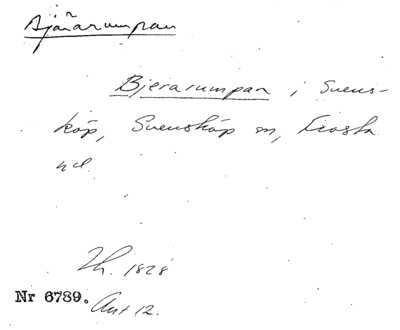 Bjärarumpan
Bjerarumpan i Svens-
köp, Svensköp sn, Frosta
hd.
Th. 1828
Nr 6789. Ant 12.